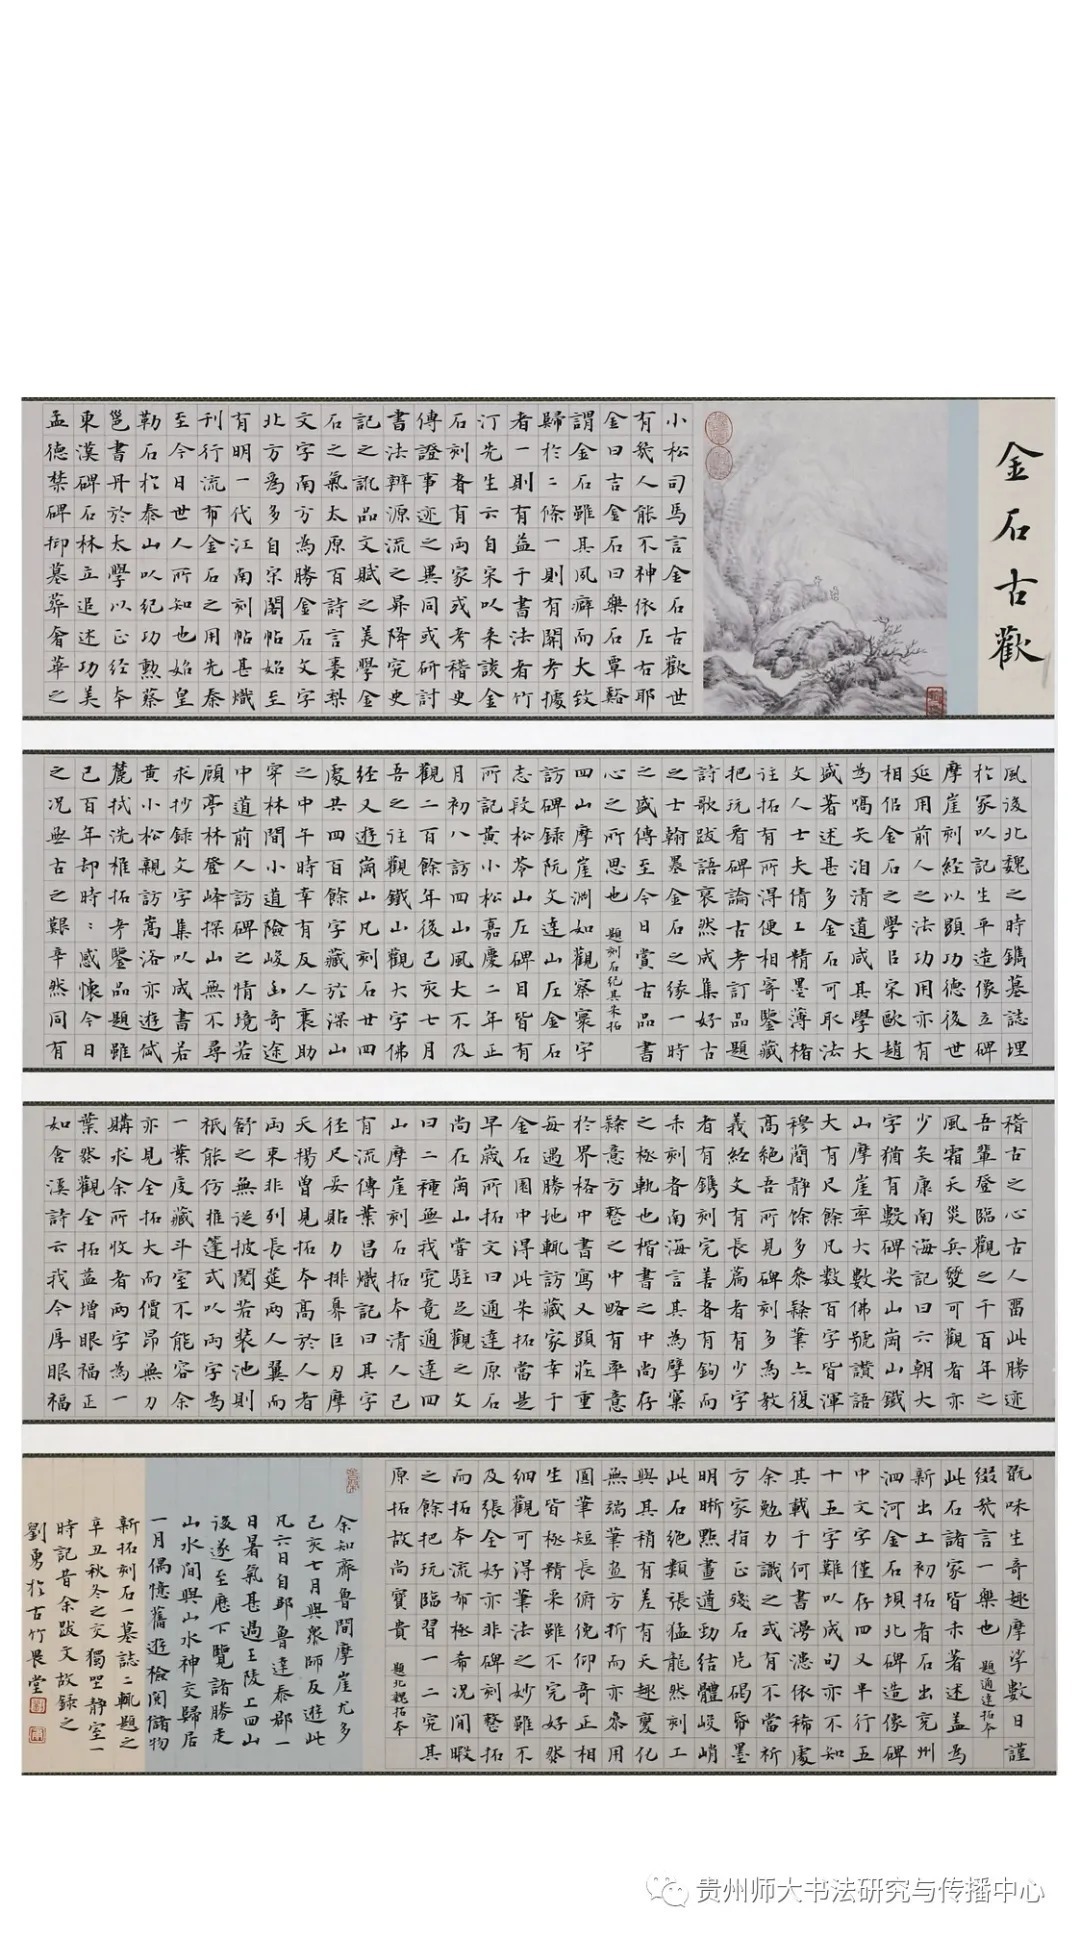 金石古歡
小松司馬言金石古歡世
有幾人能不神依左古耶
金曰吉金石曰樂石覃谿
謂金石雖其風癖而大致
歸於二條一則有開考據
者一則有益于書法者竹
汀先生云自宋以來談金
石刻者有兩家或考稽史
傳證事迹之異同或研討
書法辨源流之昇降究史
記之訛品文賦之美學金
石之氣太原百詩言棗梨
文字南方為勝金石文字
北方為多自宋閣帖始至
有明一代江南刻帖甚熾
刊行流布金石之用先秦
至今日世人所知也始皇
勒石於泰山以紀功勲蔡
邕書丹於太學以正經本
東漢碑石林立追述功美
孟德禁碑抑墓葬奢華之
風後北魏之時鐫墓誌埋
於冢以記生平造像立碑
摩崖刻經以顯功德後世
延用前人之法功用亦有
相侶金石之學臣宋歐趙
為嚆矢洎清道咸其學大
盛著述甚多金石可取法
文人士夫倩工精墨薄楮
注拓有所得便相寄鑒藏
把玩看碑論古考訂品題
詩歌跋語裒然成集好古
之士翰墨金石之緣一時
之盛傳至今日賞古品書
心之所思也 題刻石紀其朱拓
四山摩崖淵如觀察寰宇
訪碑錄阮文達山左金石
志段松苓山左碑目皆有
所記黃小松嘉慶二年正
月初八訪四山風大不及
觀二百餘年後己亥七月
吾之注觀鐵山觀大字佛
經又遊崗山凡刻石廿四
處共四百餘字藏於深山
之中午時幸有友人襄助
穿林間小道險峻幽奇途
中道前人訪碑之情境若
顧亭林登峰探山無不尋
求抄錄文字集以成書若
黃小松親訪嵩洛亦遊岱
麓拭洗椎拓考鑒品題雖
已百年却時：感懷今日
之况無古之艱辛然同有
稽古之心古人畱此勝迹
吾輩登臨觀之千百年之
風霜天災兵燹可觀者亦
少矣康南海記曰六朝大
字猶有數碑尖山崗山鐵
山摩崖率大數佛號讚語
大有尺餘凡數百字皆渾
穆簡静餘多參隸筆亦復
高絕吾所見碑刻多為教
義經文有長篇者有少字
者有鐫刻完善者有鉤而
未刻者南海言其為擘窠
之極軌也楷書之中尚存
隸意方整之中略有率意
於界格中書寫又顯莊重
每遇勝地輒訪藏家幸于
金石園中得此朱拓當是
早歲所拓文曰通達原石
尚在崗山嘗駐足觀之文
曰二種無我究竟通達四
山摩崖刻石拓本清人已
有流傳葉昌熾記曰其字
徑尺妥貼力排暴巨刃摩
天揚曾見拓本高於人者
兩束非列長莚兩人翼而
舒之無從披閱若裝池則
祇能仿推蓬式以兩字為
一葉度藏斗室不能容余
亦見全拓大而價昂無力
購求余所收者兩字為一
葉然觀全拓益增眼福正
如含溪詩云我今厚眼福
翫味生奇趣摩挲數日謹
綴幾言一樂也 題通達拓本
此石諸家皆未著述蓋為
新出土初拓者石出兗州
泗河金石壩北碑造像碑
中文字僅存四又半行五
十五字難以成句亦不知
其載于何書漫漶依稀處
余勉力識之或有不當祈
方家指正殘石片碣昏墨
明晰點畫遒勁結體峻峭
此石絕類張猛龍然刻工
與其稍有差有天趣變化
無端筆畫方折而亦參用
圓筆短長俯俛仰奇正相
生皆極精采雖不完好然
細觀可得筆法之妙雖不
及張全好亦非碑刻整拓
而拓本流布極希况閒暇
之餘把玩臨習一二究其
原拓故尚寶貴 題北魏拓本
余知齊魯間摩崖尤多
己亥七月與衆師友遊此
凡六日自鄒魯達泰郡一
日暑氣甚過王陵上四山
後遂至歷下覽諸勝走
山水間與山水神交歸居
一月偶憶舊遊檢閱儲物
新拓刻石一墓誌二輒題之
辛丑秋冬之交獨坐静室一
時記昔余跋文故録之
劉勇於古竹畏堂
贵州师大书法研究与传播中心